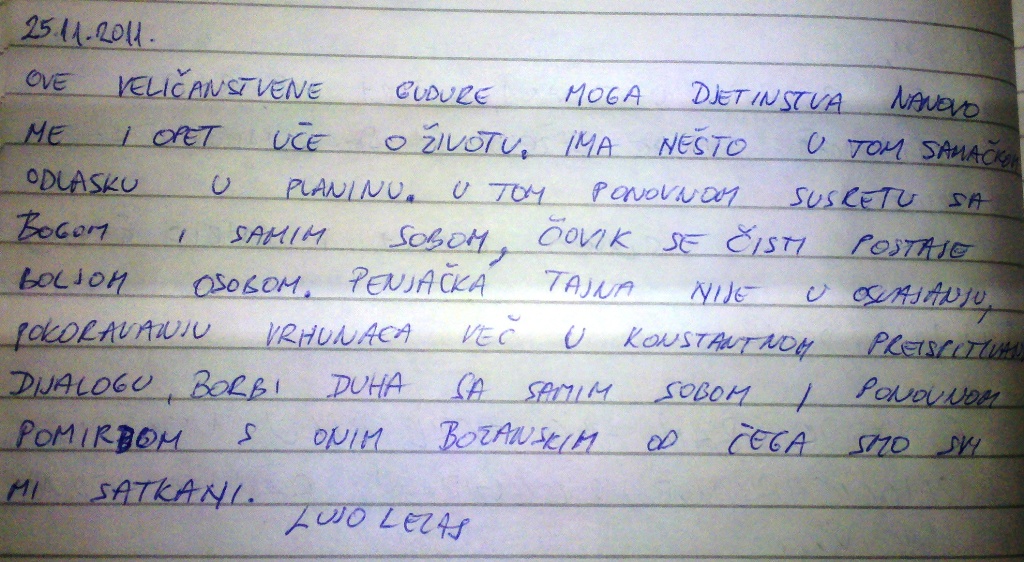 25.11.2011.
OVE VELIČANSTVENE GUDURE MOGA DJETINSTVA NANOVO
ME I OPET UČE O ŽIVOTU. IMA NEŠTO U TOM SAMAČKOM
ODLASKU U PLANINU. U TOM PONOVNOM SUSRETU SA
BOGOM I SAMIM SOBOM, ČOVIK SE ČISTI POSTAJE
BOLJOM OSOBOM. PENJAČKA TAJNA NIJE U OSVAJANJU,
POKORAVANJU VRHUNACA VEČ U KONSTANTNOM PREISPITIVANJU
DIJALOGU, BORBI DUHA SA SAMIM SOBOM I PONOVNOM
POMIRBOM S ONIM BOŽANSKIM OD ČEGA SMO SVI
MI SATKANI.
LUJO LEZAJ